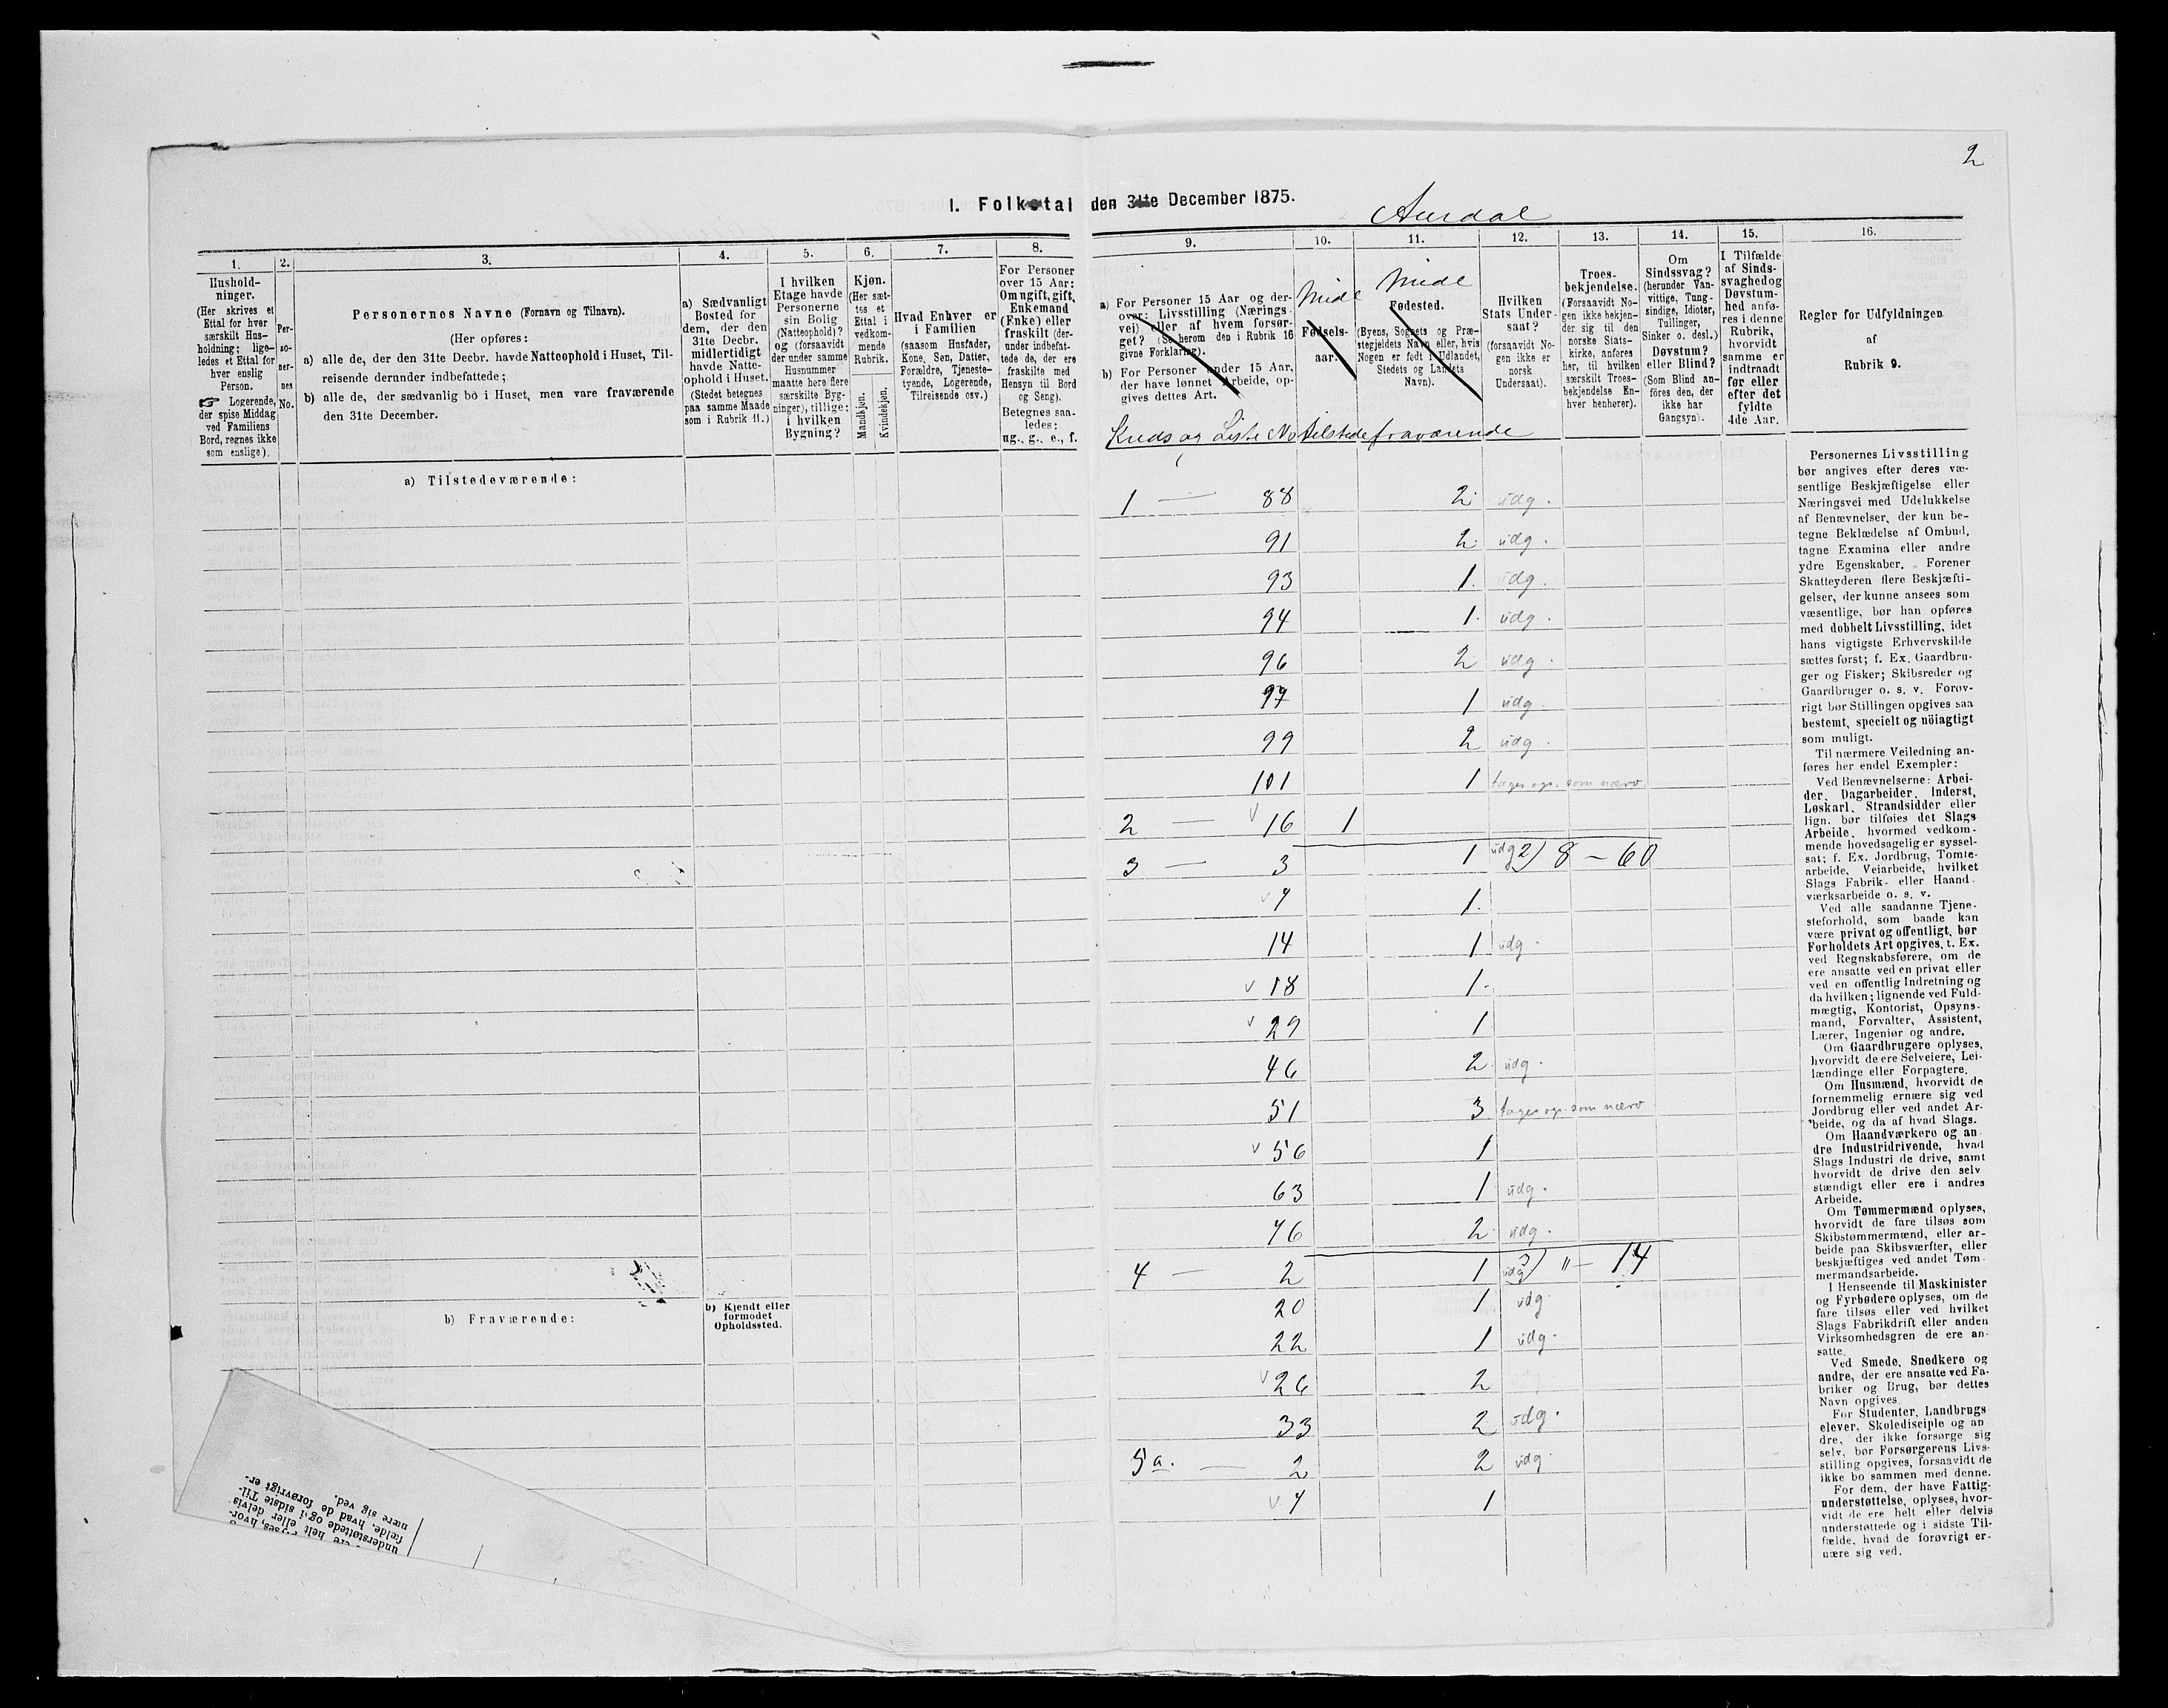 2
I. Folketal den 31te December 1875.
Aurdal
1.
Husholdninger.
(Her skrives et
Ettal for hver
særskilt Hus-
holdning; lige-
ledes et Ettal for
hver enslig
Person.
☞ Logerende,
der spise Middag
ved Familiens
Bord, regnes ikke
som enslige).
2.
Per-
so-
ner-
nes
No.
3.
Personernes Navne (Fornavn og Tilnavn).
(Her opføres:
a) alle de, der den 31te Decbr. havde Natteophold i Huset, Til-
reisende derunder indbefattede;
b) alle de, der sædvanlig bo i Huset, men vare fraværende
den 31te December.
4.
a) Sædvanligt
Bosted for
dem, der den
31te Decbr.
midlertidigt
havde Natte-
ophold i Huset.
(Stedet betegnes
paa samme Maade
som i Rubrik 11.)
5.
I hvilken
Etage havde
Personerne
sin Bolig
(Natteophold)?
og (forsaavidt
der under samme
Husnummer
maatte høre flere
særskilte Byg-
ninger), tillige:
i hvilken
Bygning?
6.
Kjøn.
(Her sæt-
tes et
Ettal i
vedkom-
mende
Rubrik.
Mandkjøn.
Kvindekjøn.
7.
Hvad Enhver er
i Familien
(saasom Husfader,
Kone, Søn, Datter,
Forældre, Tjeneste-
tyende, Logerende,
Tilreisende osv.)
8.
For Personer
over 15 Aar:
Om ugift, gift,
Enkemand
(Enke) eller
fraskilt (der-
under indbefat-
tede de, der ere
fraskilte med
Hensyn til Bord
og Seng).
Betegnes saa-
ledes:
ug., g., e., f.
9.
a) For Personer 15 Aar og der-
over: Livsstilling (Nærings-
vei) eller af hvem forsør-
get? (Se herom den i Rubrik 16
givne Forklaring).
b) For Personer under 15 Aar,
der have lønnet Arbeide, op-
gives dettes Art.
10.
Midl
Fødsels-
aar.
11.
Midl
Fødested.
(Byens, Sognets og Præ-
stegjeldets Navn eller, hvis
Nogen er født i Udlandet,
Stedets og Landets
Navn).
12.
Hvilken
Stats Under-
saat?
(forsaavidt No-
gen ikke er
norsk
Undersaat).
13.
Troes-
bekjendelse.
(Forsaavidt No-
gen ikke bekjen-
der sig til den
norske Stats-
kirke, anføres
her, til hvilken
særskilt Troes-
bekjendelse En-
hver henhører).
14.
Om
Sindssvag?
(herunder Van-
vittige, Tung-
sindige, Idioter,
Tullinger,
Sinker o. desl.)
Døvstum?
eller Blind?
(Som Blind an-
føres den, der
ikke har
Gangsyn).
15.
I Tilfælde
af Sinds-
svaghed og
Døvstum-
hed anfø-
res i denne
Rubrik,
hvorvidt
samme er
indtraadt
før eller
efter det
fyldte
4de Aar.
16.
Regler for Udfyldningen
af
Rubrik 9.
Kreds og Liste No tilstede fraværende
a) Tilstedeværende:
1 — 88 2 udg.
91 2 udg.
93 1. udg.
94 1. udg.
96 2 udg.
97 1 udg.
99 2 udg.
101 1 tages op. som nærv.
2 — v 16 1
3 — 3 1 udg 2) 8 - 60
v 7 1.
14 1 udg.
v 18 1.
v 29 1
46 2 udg.
51 3 tages op. som nærv
v 56 1
63 1 udg.
76 2 udg.
4 — 2 1 udg 3) " - 14
20 1 udg
22 1 udg.
v 26 2
33 2 udg.
5a. — 2 2 udg
v 7 1
b) Fraværende:
b) Kjendt eller
formodet
Opholdssted.
Personernes Livsstilling
bør angives efter deres væ-
sentlige Beskjæftigelse eller
Næringsvei med Udelukkelse
af Benævnelser, der kun be-
tegne Beklædelse af Ombud,
tagne Examina eller andre
ydre Egenskaber. Forener
Skatteyderen flere Beskjæfti-
gelser, der kunne ansees som
væsentlige, bør han opføres
med dobbelt Livsstilling, idet
hans vigtigste Erhvervskilde
sættes først; f. Ex. Gaardbru-
ger og Fisker; Skibsreder og
Gaardbruger o. s. v. Forøv-
rigt bør Stillingen opgives saa
bestemt, specielt og nöiagtigt
som muligt.
Til nærmere Veiledning an-
føres her endel Exempler:
Ved Benævnelserne: Arbei-
der, Dagarbeider, Inderst,
Løskarl, Strandsidder eller
lign. bør tilføies det Slags
Arbeide, hvormed vedkom-
mende hovedsagelig er syssel-
sat; f. Ex. Jordbrug, Tomte-
arbeide, Veiarbeide, hvilket
Slags Fabrik- eller Haand-
værksarbeide o. s. v.
Ved alle saadanne Tjene-
steforhold, som baade kan
være privat og offentligt, bør
Forholdets Art opgives, t. Ex.
ved Regnskabsførere, om de
ere ansatte ved en privat eller
ved en offentlig Indretning og
da hvilken; lignende ved Fuld-
mægtig, Kontorist, Opsyns-
mand, Forvalter, Assistent,
Lærer, Ingeniør og andre.
Om Gaardbrugere oplyses,
hvorvidt de ere Selveiere, Lei-
lændinge eller Forpagtere.
Om Husmænd, hvorvidt de
fornemmelig ernære sig ved
Jordbrug eller ved andet Ar-
beide, og da af hvad Slags.
Om Haandværkere og an-
dre Industridrivende, hvad
Slags Industri de drive, samt
hvorvidt de drive den selv-
stændigt eller ere i andres
Arbeide.
Om Tømmermænd oplyses,
hvorvidt de fare tilsøs som
Skibstømmermænd, eller ar-
beide paa Skibsværfter, eller
beskjæftiges ved andet Tøm-
mermandsarbeide.
I Henseende til Maskinister
og Fyrbødere oplyses, om de
fare tilsøs eller ved hvilket
Slags Fabrikdrift eller anden
Virksomhedsgren de ere an-
satte.
Ved Smede, Snedkere og
andre, der ere ansatte ved Fa-
briker og Brug, bør dettes
Navn opgives.
For Studenter, Landbrugs-
elever, Skoledisciple og an-
dre, der ikke forsørge sig
selv, bør Forsørgerens Livs-
stilling opgives, forsaavidt de
ikke bo sammen med denne.
For dem, der have Fattig-
understøttelse, oplyses, hvor-
vidt de ere helt eller delvis
understøttede og i sidste Til-
fælde, hvad de forøvrigt er-
nære sig ved.
yses, hvor-
ere helt eller delvis
understøttede og i sidste Til-
fælde, hvad de forøvrigt er-
nære sig ved.